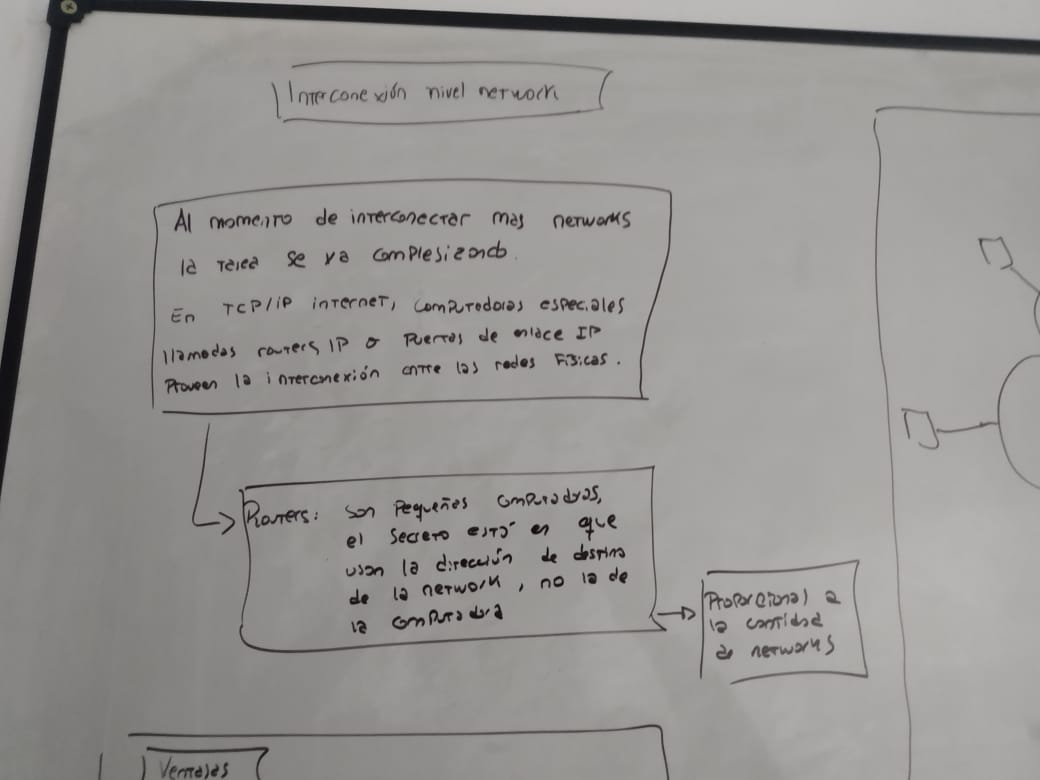 Interconexión nivel network
Al momento de interconectar mas networks
la tarea se va complesizando.
En TCP/IP internet, computadoras especiales
llamadas routers IP o Puertas de enlace IP
Proveen la interconexión entre las redes Físicas.
Routers: son pequeñas computadoras,
el secreto está en que
usan la dirección de destino
de la network, no la de
la computadora
Proporcional a
la cantidad
de networks
Ventajas